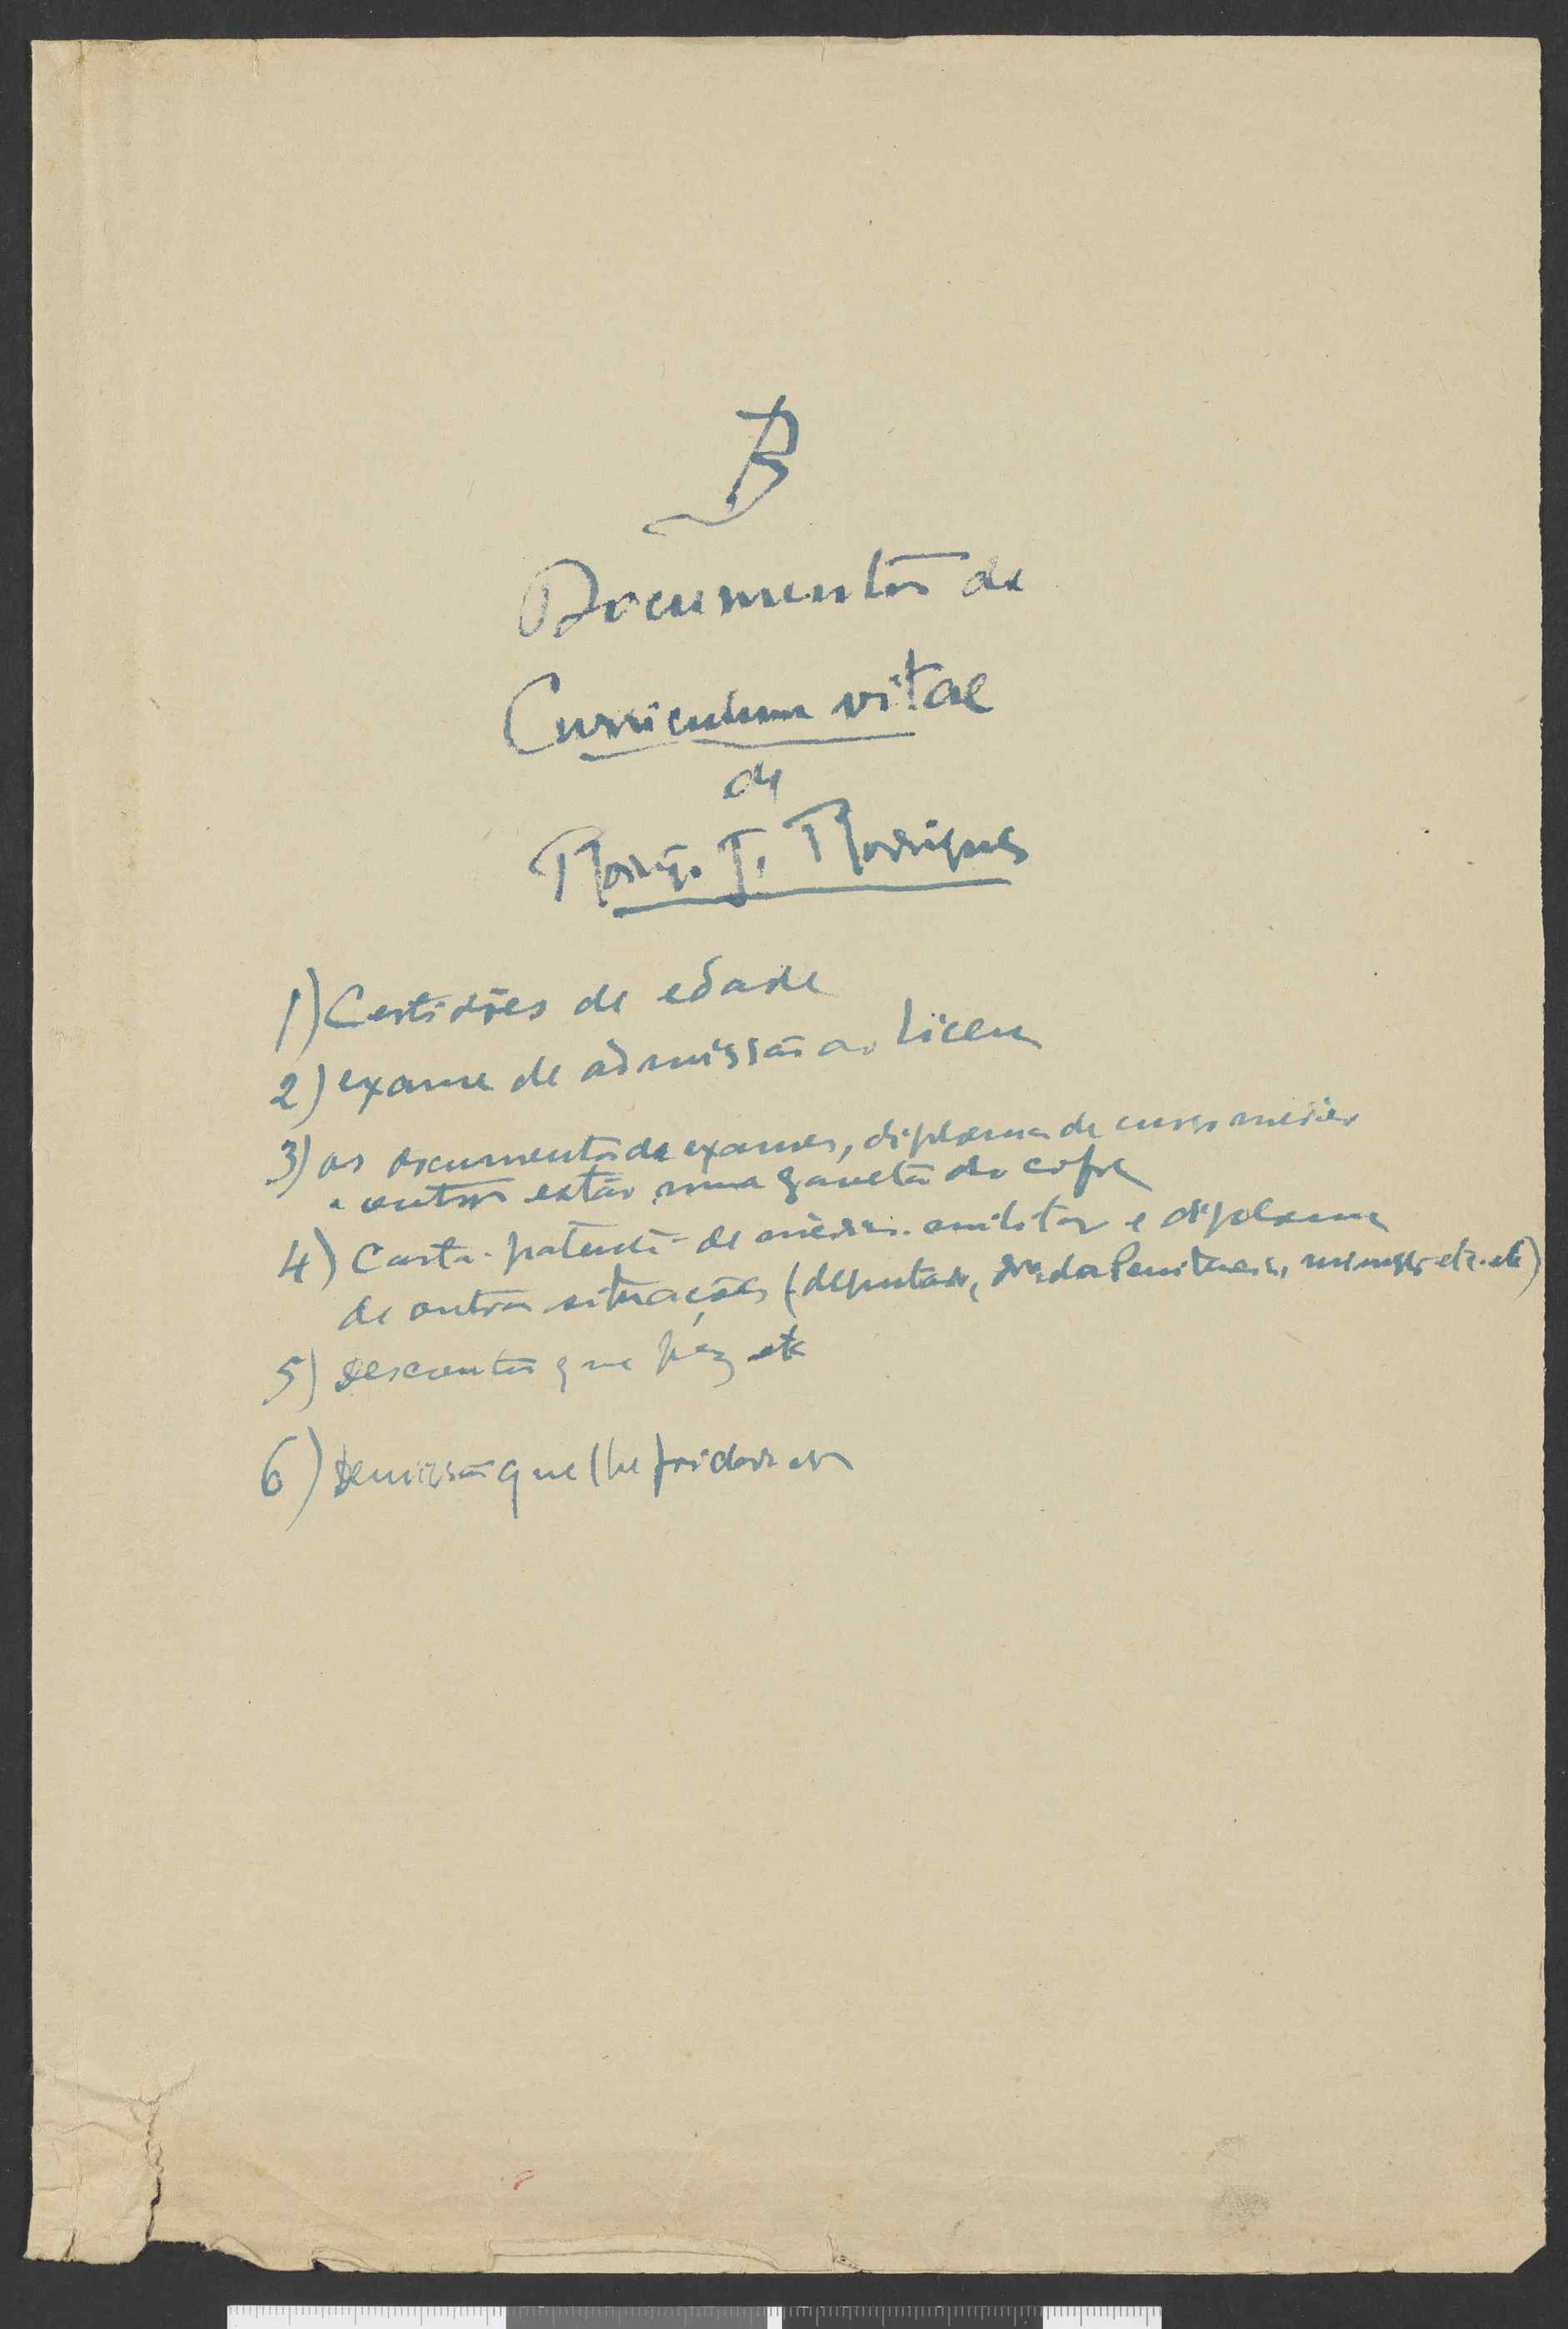 B
Documentos de
Curriculum vitae
de
Rodrigo J. Rodrigues
1) Certidões de edade
2) exame de admissão ao liceu
3) os documentos de exames, diploma de curso medico
e outros estão numa gaveta do cofre
4) Carta patente de medico militar e diploma
de outras situações (deputado, da Penitenciaria, ministro etc. etc)
5) descontos que fez etc
6) demissão que lhe foi dada